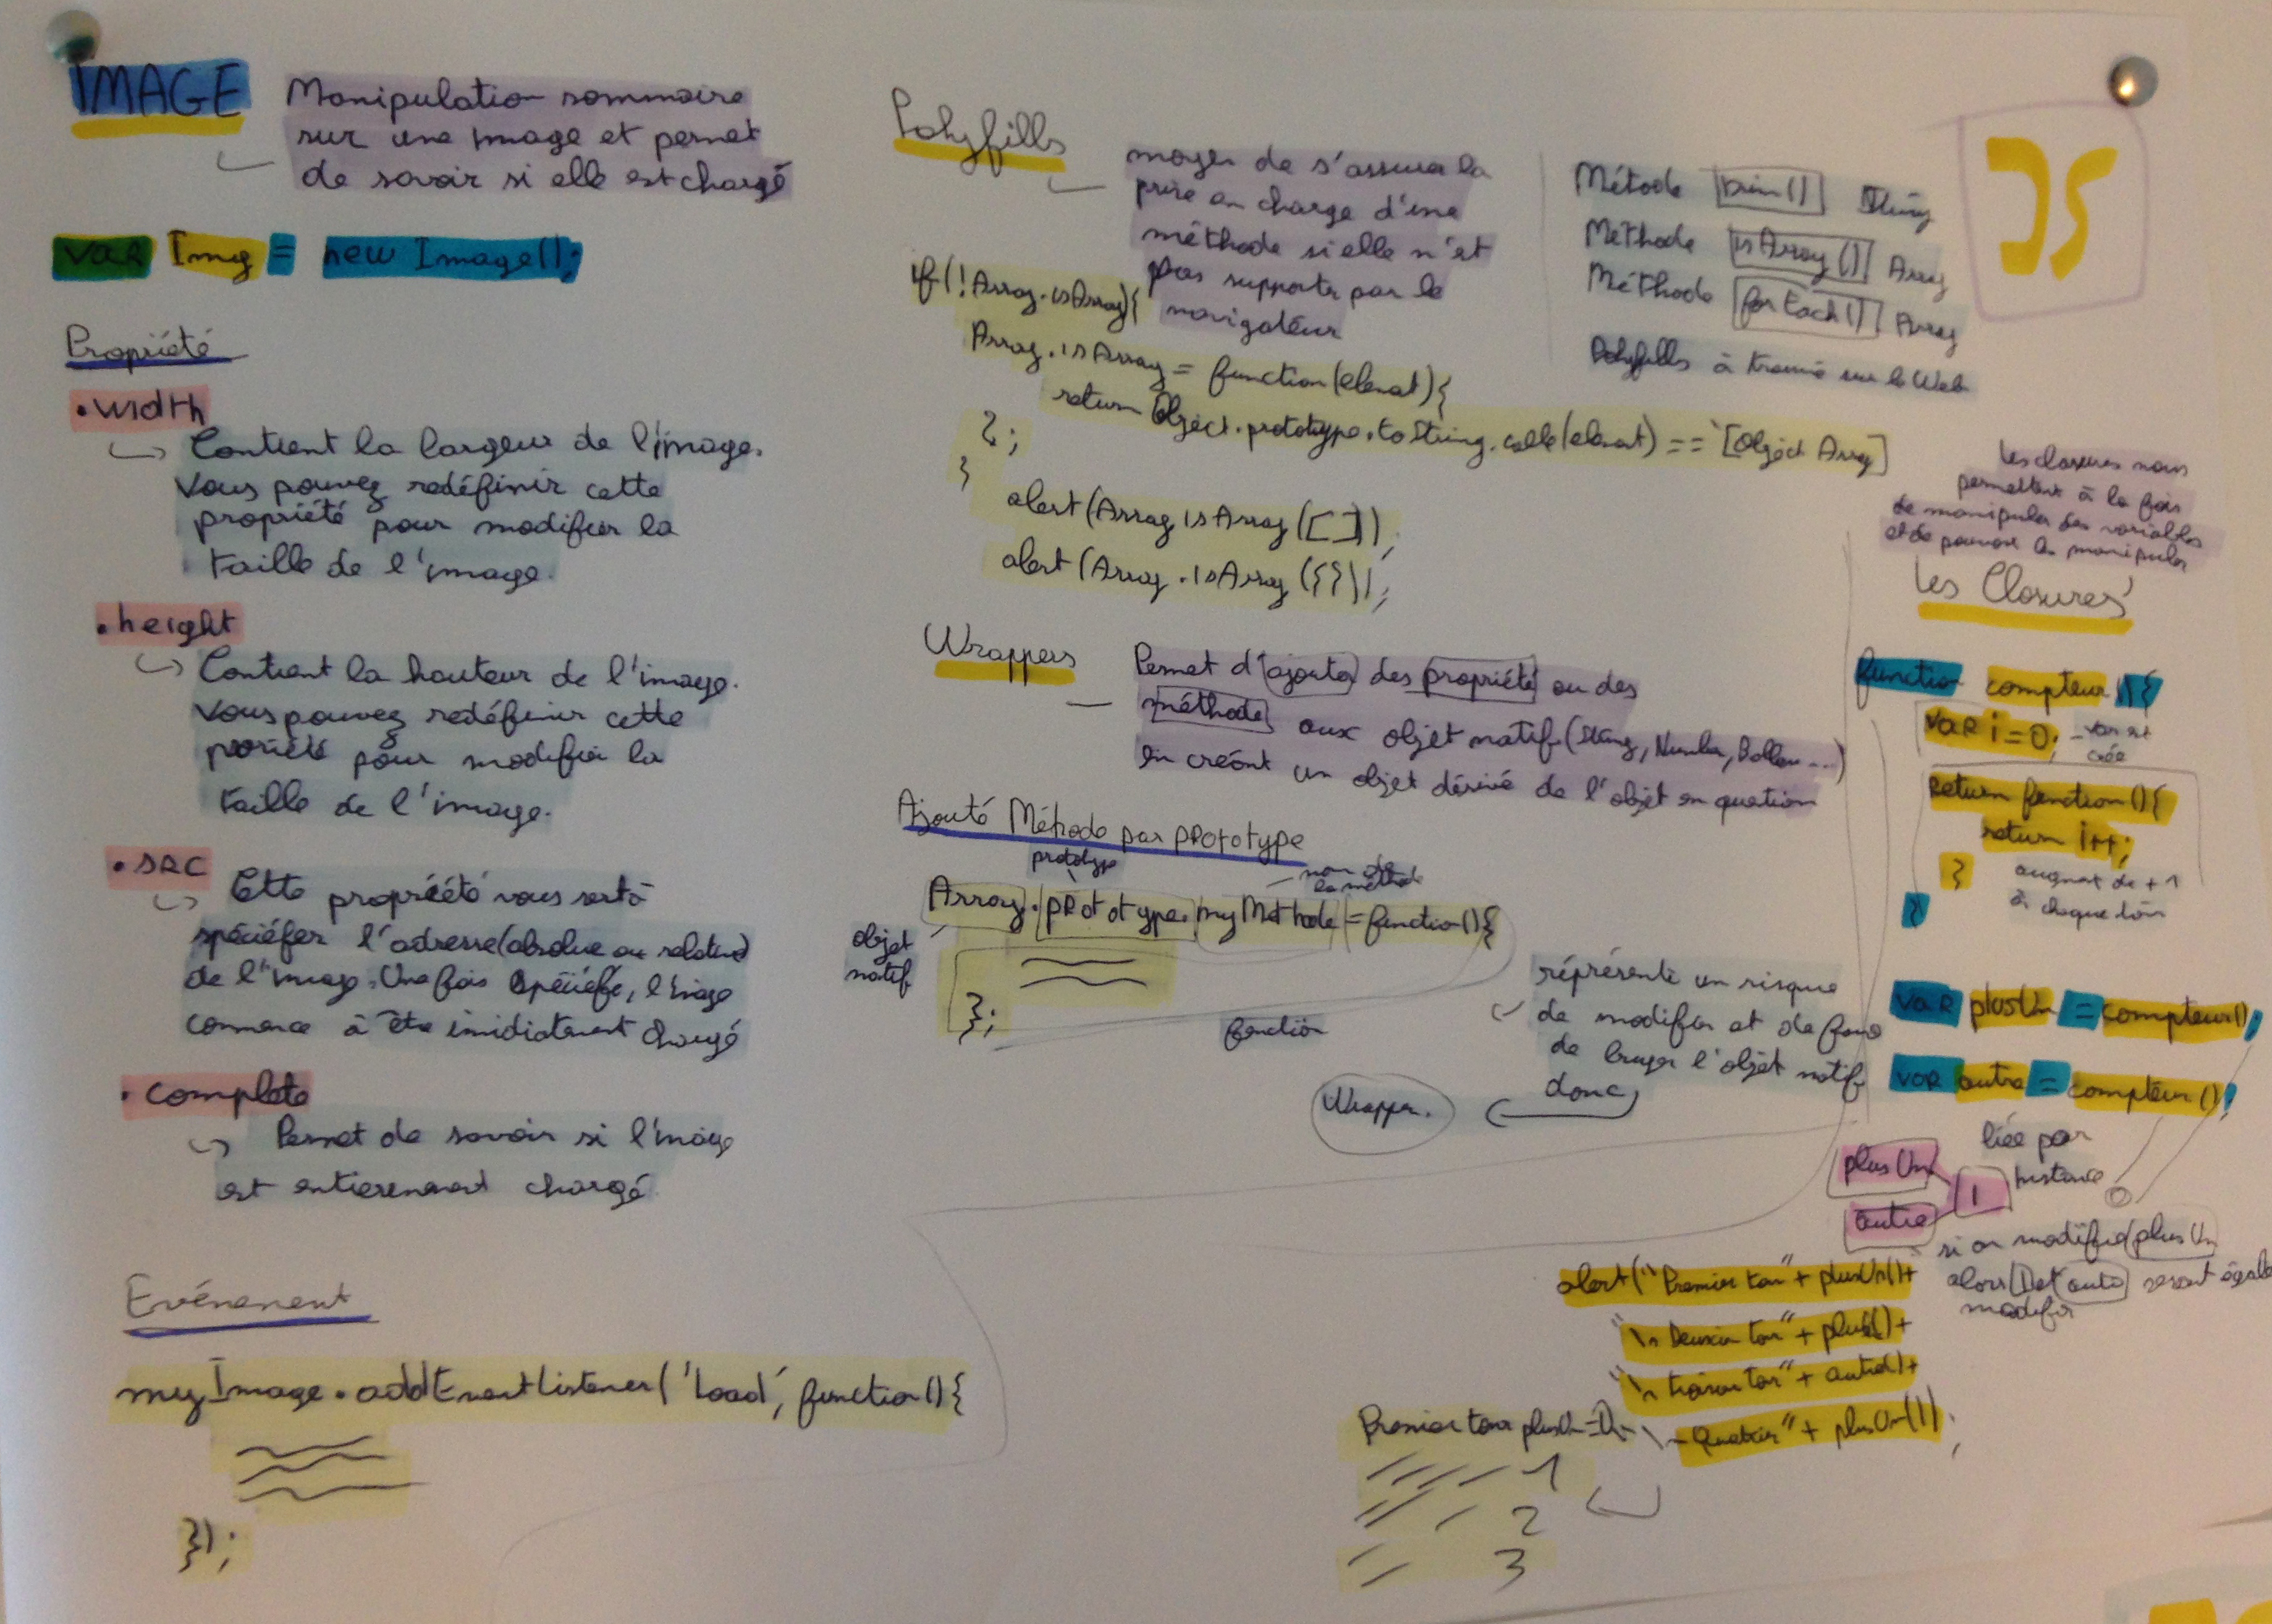 IMAGE
Manipulation sommaire
sur une image et permet
de savoir si elle est chargé
VAR Img = new Image();
Propriété
• width
Contient la largeur de l'image.
Vous pouvez redéfinir cette
propriété pour modifier la
taille de l'image.
• height
Contient la hauteur de l'image.
Vous pouvez redéfinir cette
pour modifier la
taille de l'image.
• SRC
Cette propriété vous sert à
l'adresse (absolue ou relative)
de l'image. Une fois l'image
commence à être chargé
• complete
Permet de savoir si l'image
est chargé
Evénement
myImage.addEventListener('Load', function(){
});
Polyfills
moyen de s'assurer la
prise en charge d'une
méthode si elle n'est
pas supporter par le
navigateur
if(!Array.isArray){
Array.isArray = function(element){
return Object.prototype.toString.call(element) == '[Object Array]
};
}
alert(Array isArray([]);
alert(Array.isArray({}));
Métode trim() String
Méthode isArray() Array
Méthode forEach() Array
Polyfills à trouvé sur le Web
JS
Wrappers
Permet d'ajouter des propriété ou des
méthode aux objet natif (String, Number, ...)
en créant un objet dérivé de l'objet en question
Ajouté Méthode par prototype
prototype
nom de
la méthode
Array.prototype.myMethode = function(){
objet
natif
};
fonction
réprésente un risque
de modifier et de
de buger l'objet natif
donc
Wrapper.
Les closures nous
permettent à la fois
de manipuler des variables
et de pouvoir les manipuler
Les Closures
function compteur(){
VAR i = 0;
var est
créé
Return function(){
return i++;
}
de +1
à chaque
}
VAR plusUn = compteur();
VAR autre = compteur();
liée par
instance
plusUn
autre
si on modifie plusUn
alors autre seront
modifier
alert("Premier tour" + plusUn()+
"\n tour" + +
"\n tour" + +
+ plusUn();
Premier tour
1
2
3